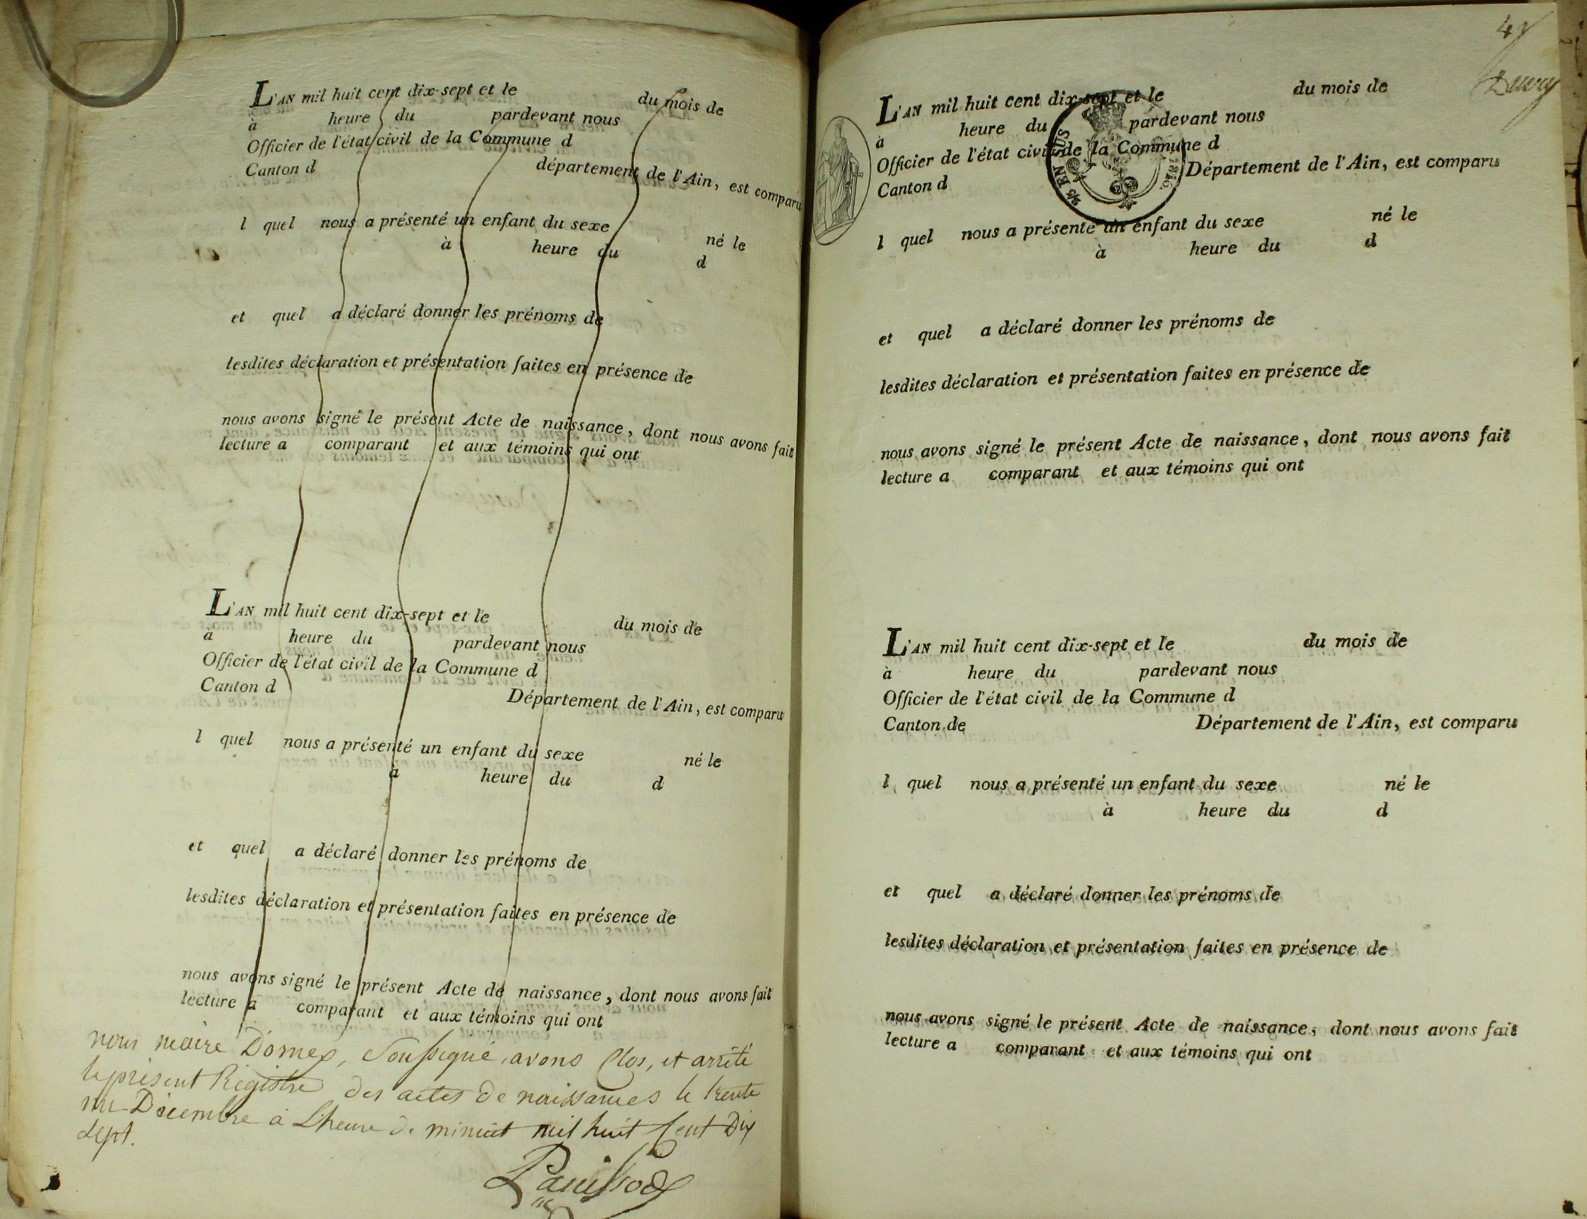 L'AN mil huit cent dix-sept et le du mois de
à heure du pardevant nous
Officier de l'état civil de la Commune d
Canton d département de l'Ain, est comparu
l quel nous a présenté un enfant du sexe né le
à heure du d
et quel a déclaré donner les prénoms de
lesdites déclaration et présentation faites en présence de
nous avons signé le présent Acte de naissance, dont nous avons fait
lecture a comparant et aux témoins qui ont
L'AN mil huit cent dix-sept et le du mois de
à heure du pardevant nous
Officier de l'état civil de la Commune d
Canton d Département de l'Ain, est comparu
l quel nous a présenté un enfant du sexe né le
à heure du d
et quel a déclaré donner les prénoms de
lesdites déclaration et présentation faites en présence de
nous avons signé le présent Acte de naissance, dont nous avons fait
lecture a comparant et aux témoins qui ont
nous maire Soussigné avons Clos, et arrêté
le présent Registre des actes de naissances le trente
un Décembre à L'heure de minuit mil huit Cent Dix
Sept.
L'AN mil huit cent dix-sept et le du mois de
à heure du pardevant nous
Officier de l'état civil de la Commune d
Canton d Département de l'Ain, est comparu
EN SUS
l quel nous a présenté un enfant du sexe né le
à heure du d
et quel a déclaré donner les prénoms de
lesdites déclaration et présentation faites en présence de
nous avons signé le présent Acte de naissance, dont nous avons fait
lecture a comparant et aux témoins qui ont
L'AN mil huit cent dix-sept et le du mois de
à heure du pardevant nous
Officier de l'état civil de la Commune d
Canton de Département de l'Ain, est comparu
l quel nous a présenté un enfant du sexe né le
à heure du d
et quel a déclaré donner les prénoms de
lesdites déclaration et présentation faites en présence de
nous avons signé le présent Acte de naissance, dont nous avons fait
lecture a comparant et aux témoins qui ont